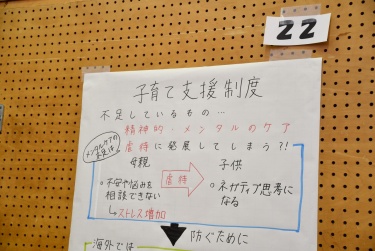 22
子育て支援制度
不足しているもの…
精神的・メンタルのケア
メンタルケアの不足は
虐待に発展してしまう?!
母親
子供
・不安や悩みを
相談できない
↳ストレス増加
虐待
・ネガティブ思考に
なる
防ぐために
海外では